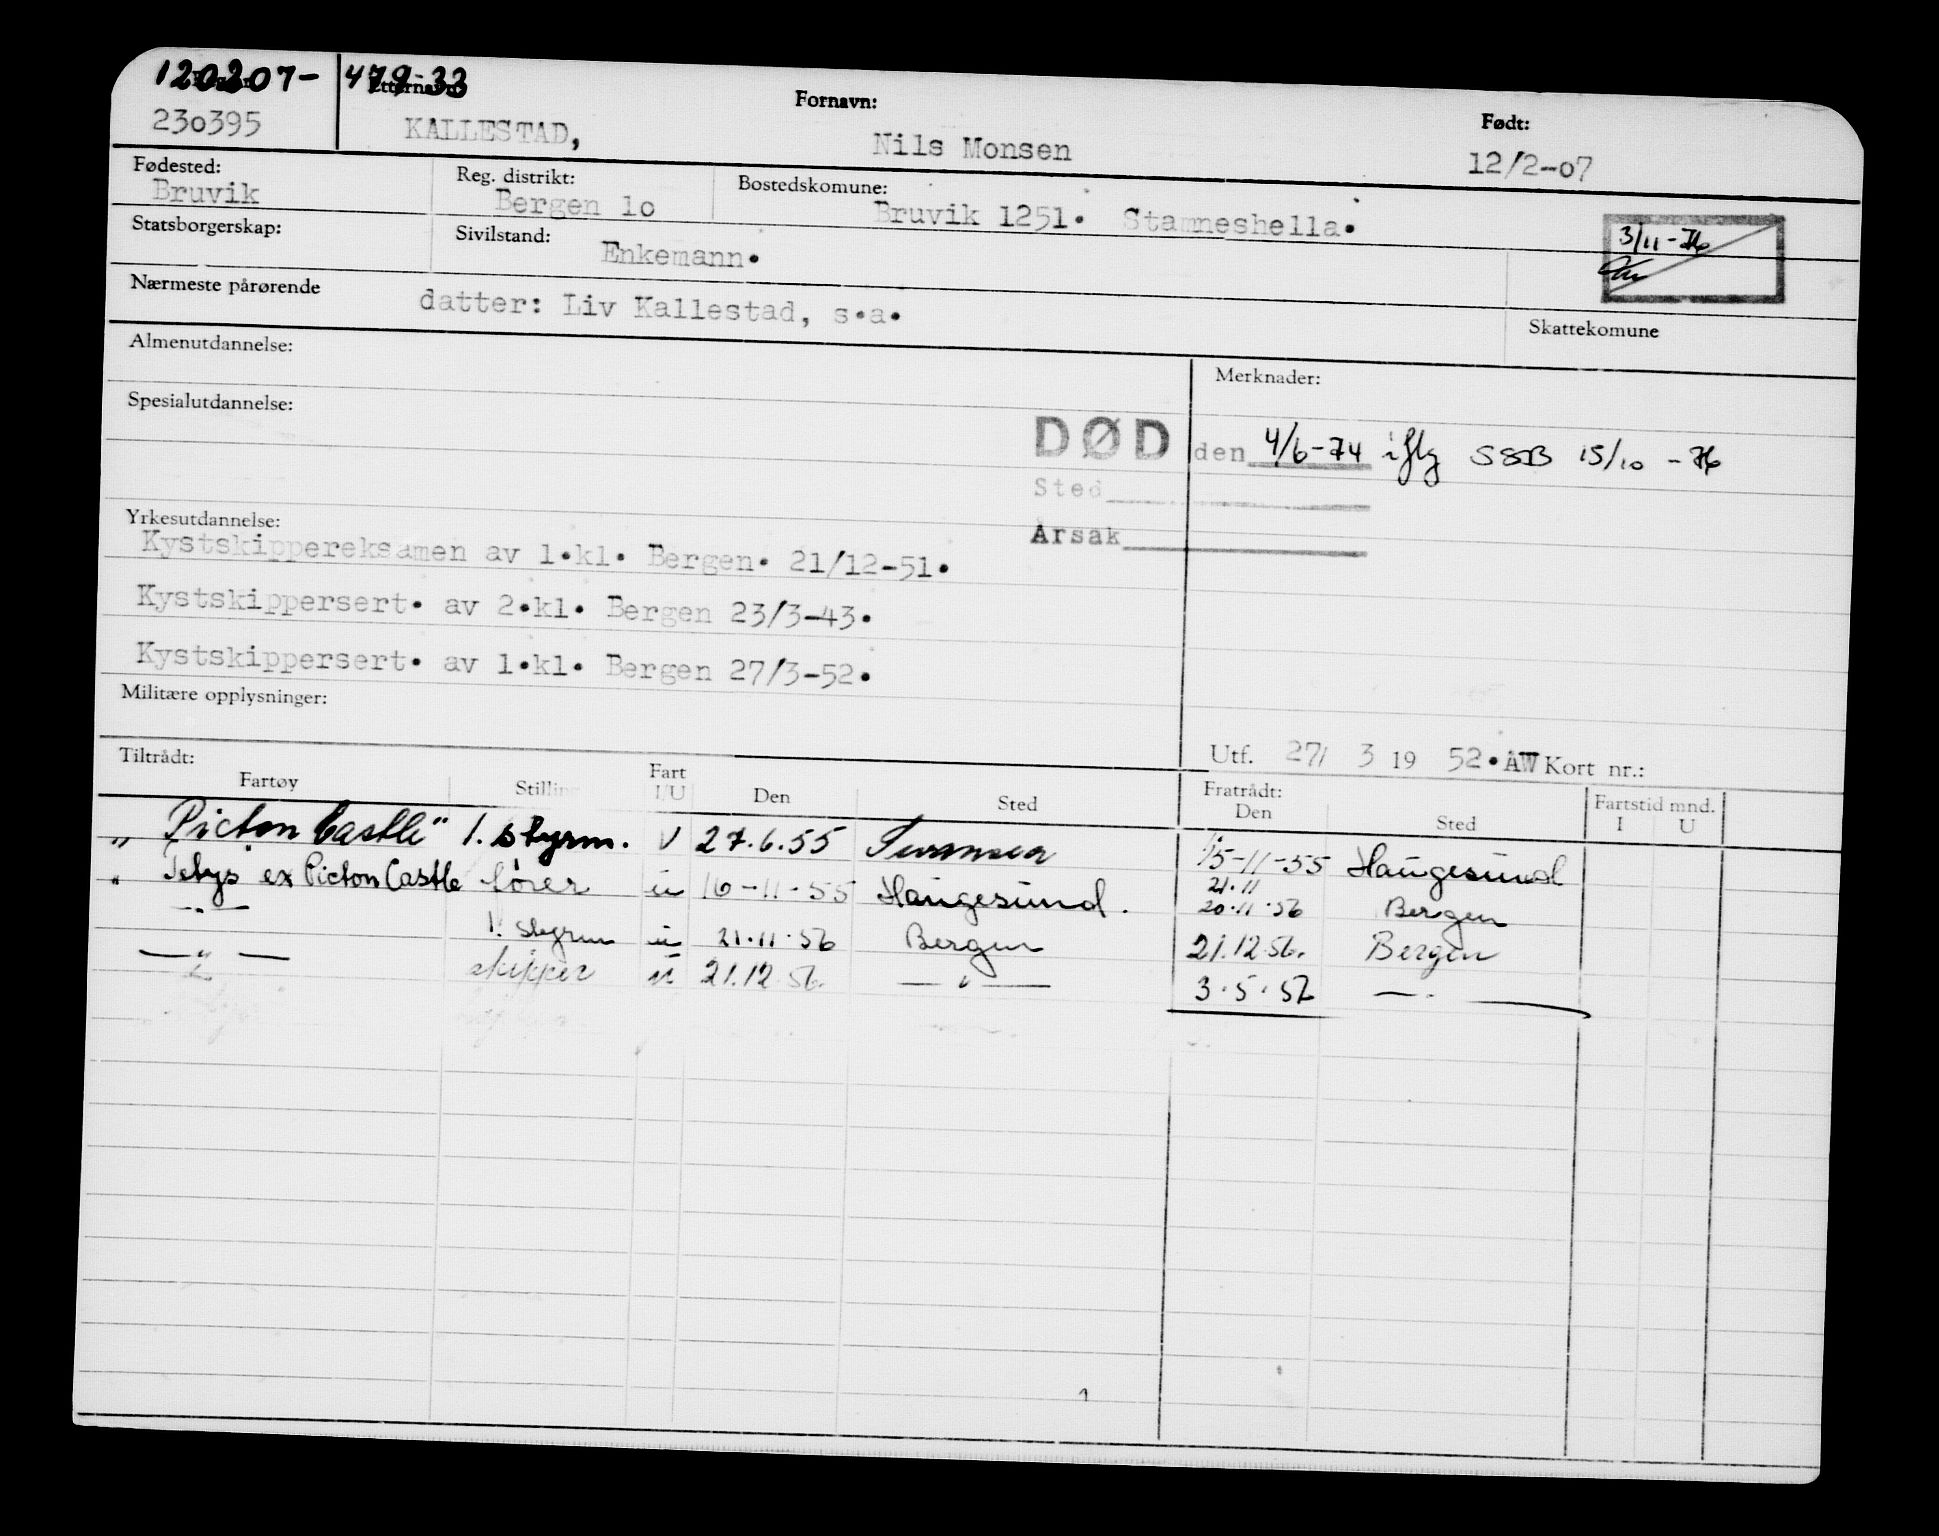 120207- 479-33
230395 KALLESTAD, Fornavn: Nils Monsen Født: 12/2-07
Fødested: Bruvik Reg. distrikt: Bergen 10 Bostedskomune: Bruvik 1251. Stamneshella.
Statsborgerskap: Sivilstand: Enkemann. 3/11-76
Nærmeste pårørende datter: Liv Kallestad, s.a. Skattekomune
Almenutdannelse: Merknader:
Spesialutdannelse:
DØD den 4/6-74 iflg SSB 15/10-76
Sted
Årsak
Yrkesutdannelse:
Kystskippereksamen av 1.kl. Bergen. 21/12-51.
Kystskippersert. av 2.kl. Bergen 23/3-43.
Kystskippersert. av 1.kl. Bergen 27/3-52.
Militære opplysninger:
Utf. 27/ 3 19 52. AW Kort nr.:
Tiltrådt: Fratrådt: Fartstid mnd.
Fartøy Stilling Fart I/U Den Sted Den Sted I U
" Picton Castle" 1. styrm. U 27.6.55 Swansea 15-11-55 Haugesund
" Tetys ex Picton Castle fører u 16-11-55 Haugesund. 21.11 20.11.56 Bergen
—"— 1. styrm u 21.11.56 Bergen 21.12.56. Bergen
—"— skipper u 21.12.56. —"— 3.5.57 —"—